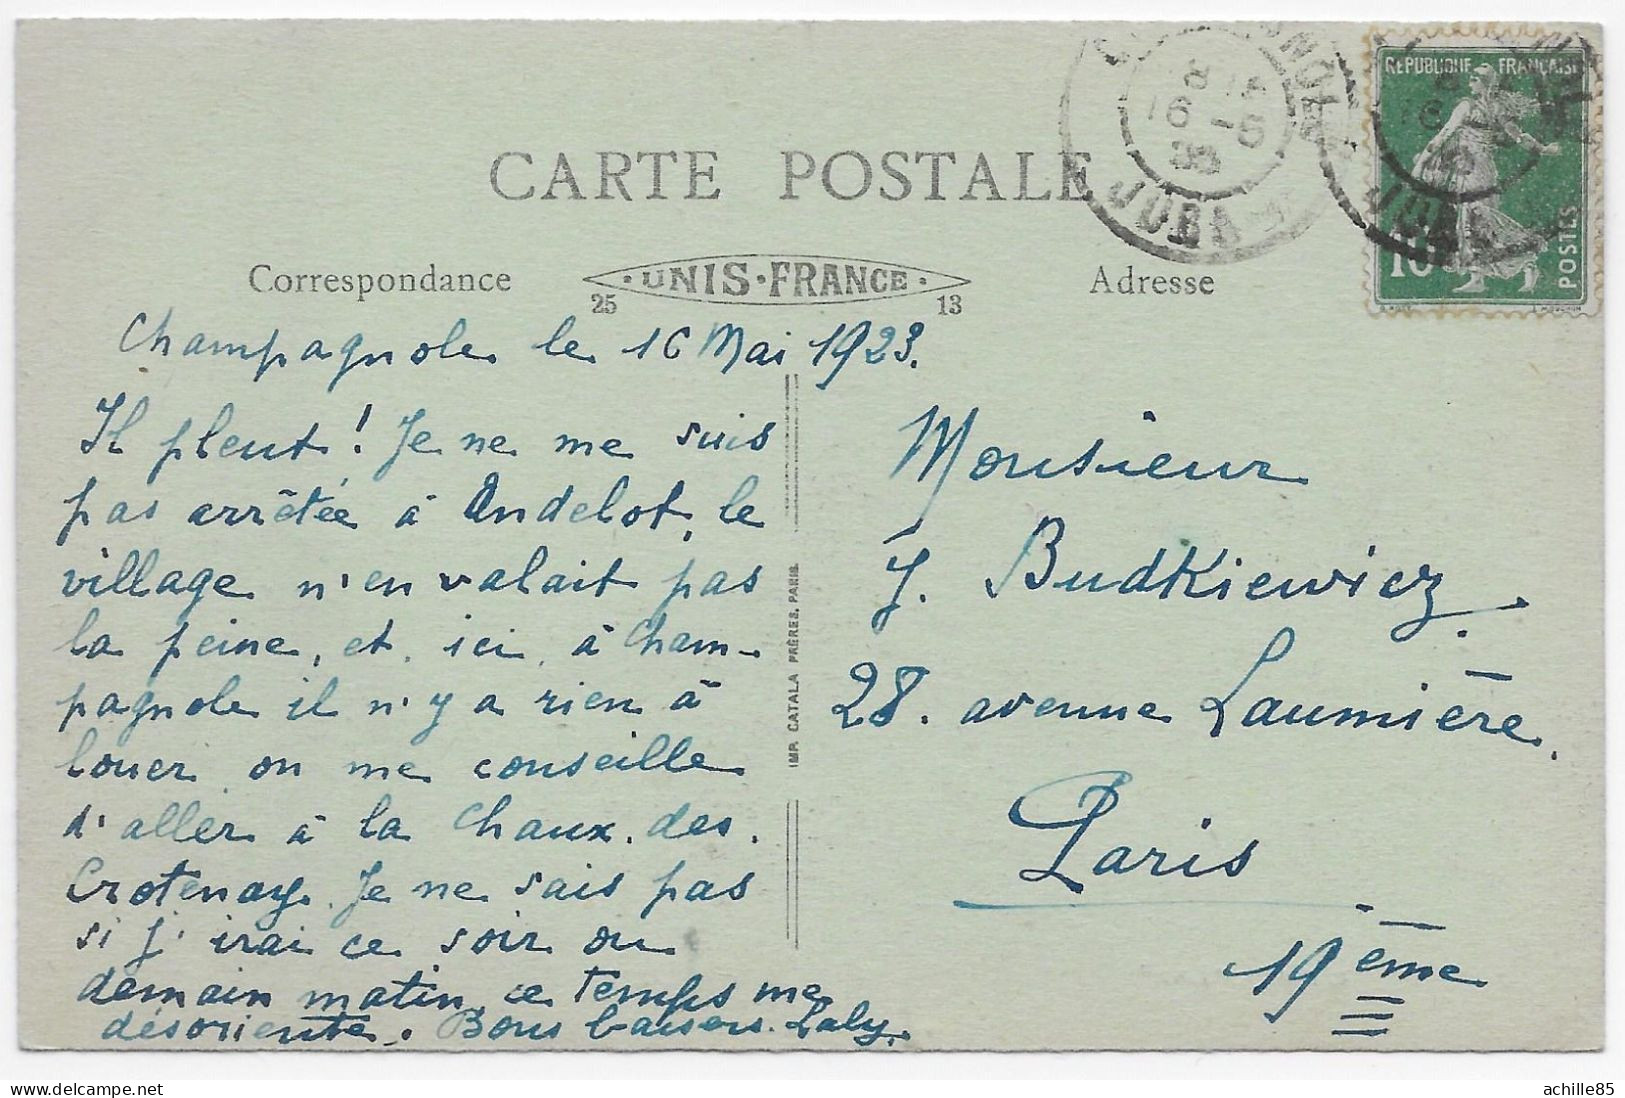 CARTE POSTALE
Correspondance
UNIS-FRANCE
25 13
Adresse
RÉPUBLIQUE FRANÇAISE
10
POSTES
16 -5
JURA
Champagnole le 16 Mai 1923.
Il pleut! Je ne me suis
pas arrêtée à Andelot, le
village n'en valait pas
la peine, et, ici, à Cham-
pagnole il n'y a rien à
louer on me conseille
d'aller à la Chaux. des.
Crotenay. Je ne sais pas
si j'irai ce soir ou
demain matin, ce temps me
désoriente. Bons baisers. Laly.
IMP. CATALA FRÈRES, PARIS.
Monsieur
J. Budkiewicz.
28. avenue Laumière.
Paris
19ème
achille85